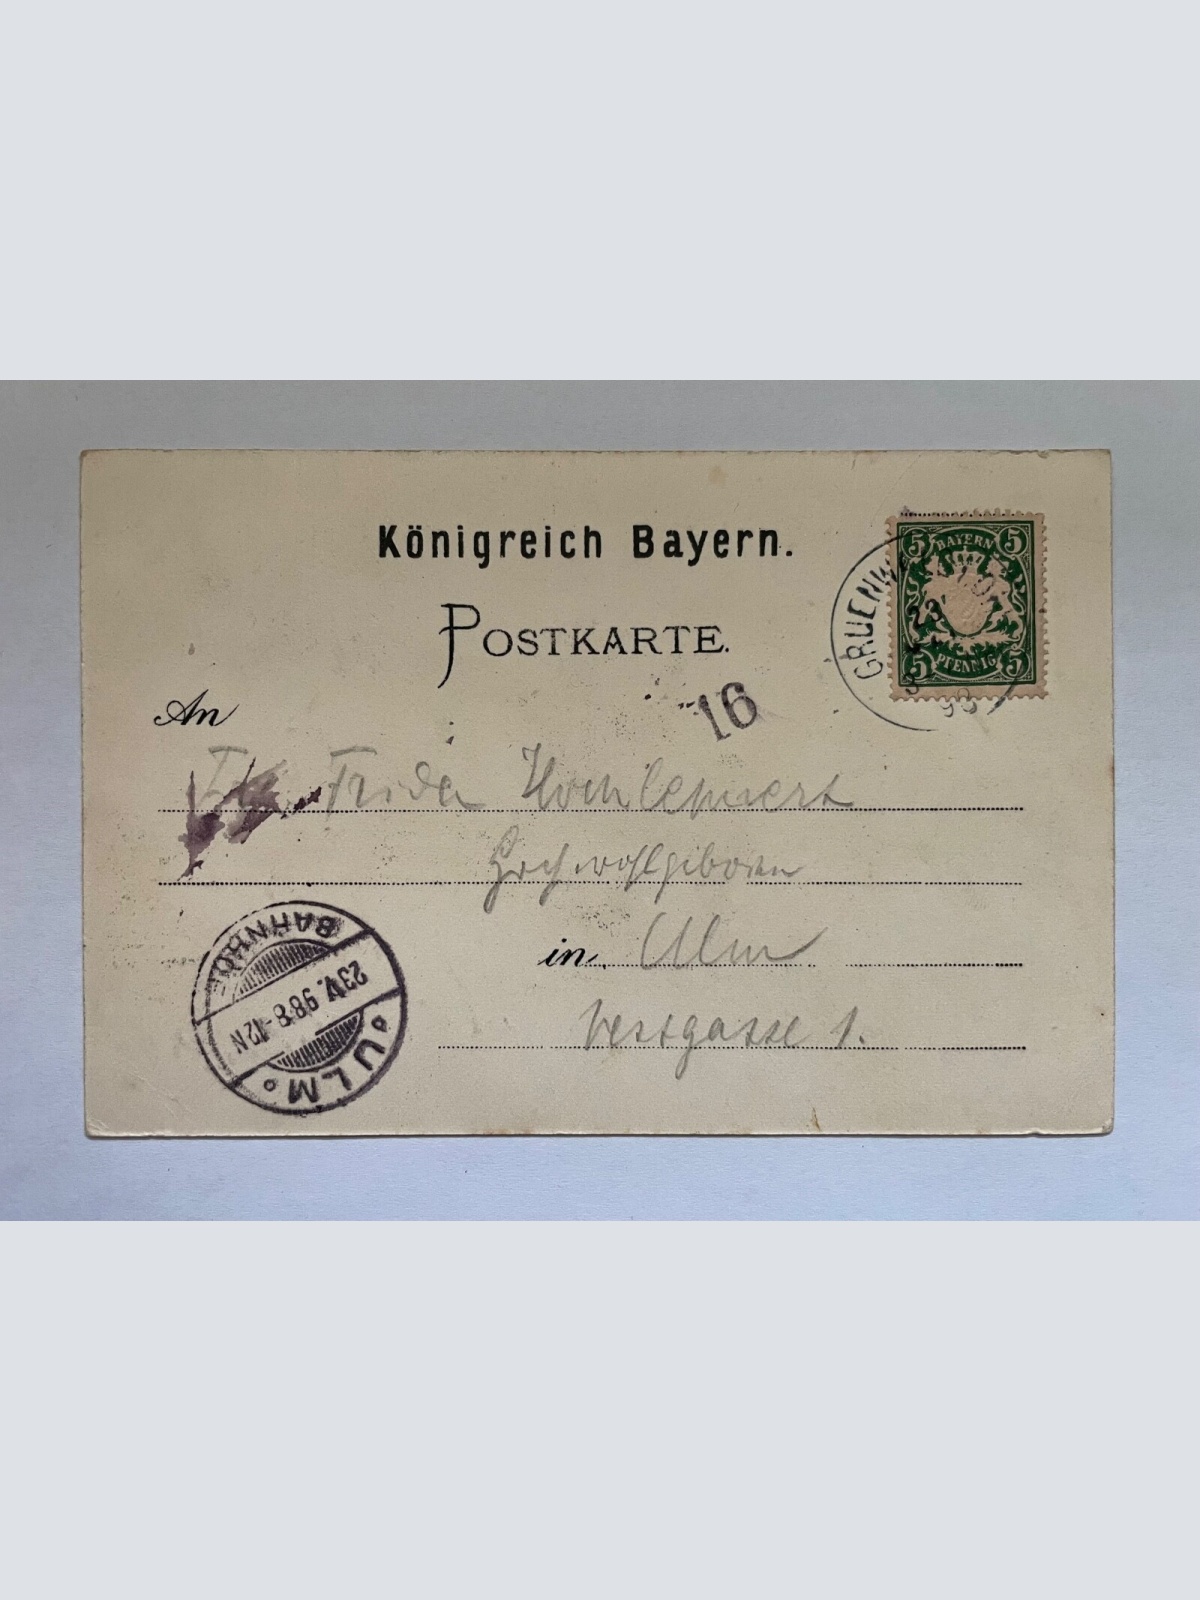 Königreich Bayern.
POSTKARTE.
5 BAYERN 5
5 PFENNIG 5
GRUENW
23
98
16
An
Frida
Hochwohlgeboren
in Ulm
1.
BAHNHOF
23 V. 98 8-12 N
ULM